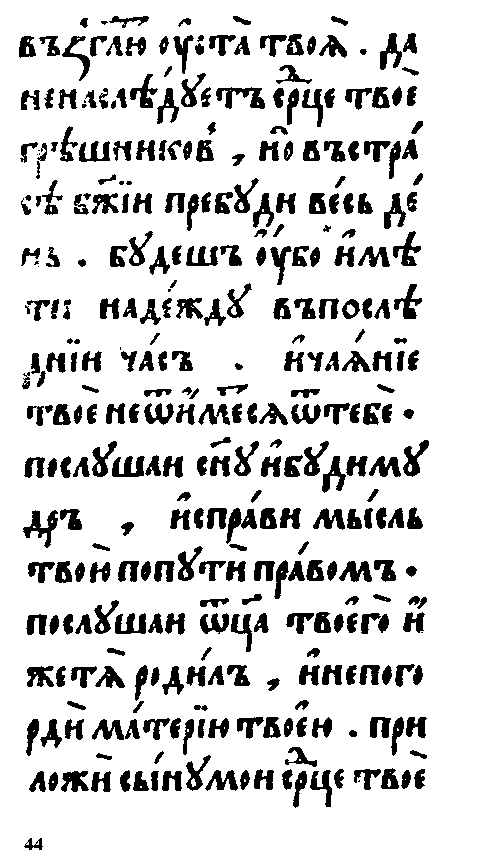 въꙁглю оу҆ста̀ твоѧ̀ . да
ненаслѣ́дуетъ срⷣце твоѐ
грѣшниковъ , но̀ въстра́
сѣ бж҃їи пребу́ди ве́сь де́
нь . бу́дешъ оу҆́бо и҆мѣ́
ти наде́жду въпослѣ́
днїи ча́съ . и҆чаѧ́нїе
твоѐ неѿи́мет̾сѧ ѿтебѐ .
послу́шаи сн҃у и҆бу́димꙋ́
дръ , и҆спра́ви мы́сль
твою̀ попутѝ пра́вомъ .
послу́шаи ѿц҃а̀ твоего̀ и҆́
жетѧ̀ роди́лъ , и҆непого
рдѝ ма́терїю твое́ю . при
ложѝ сы́нумои срⷣце твоѐ
44